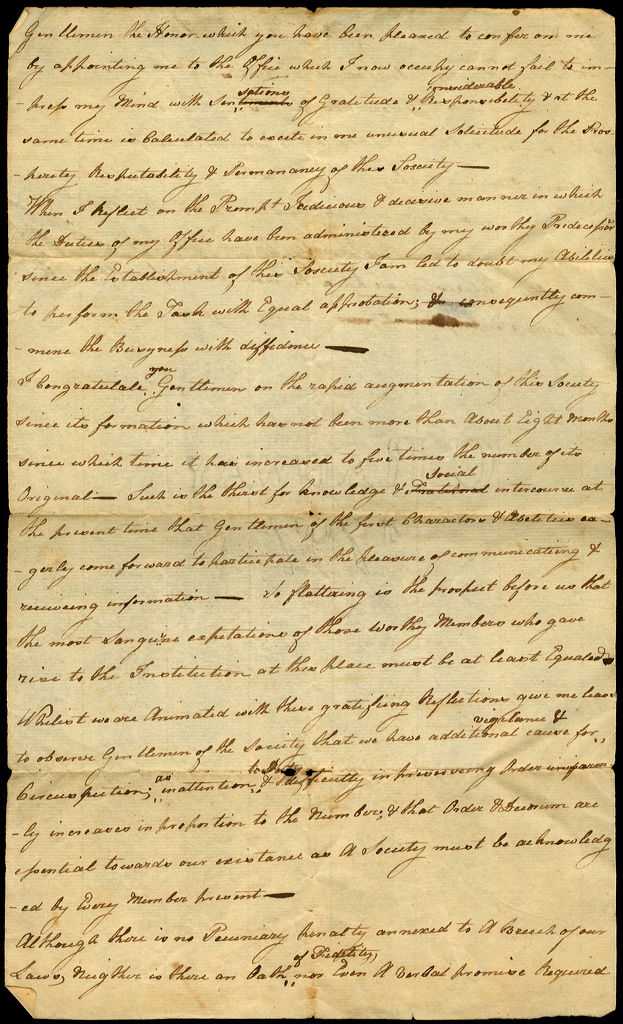 Gentlemen the Honor which you have been pleased to confer on me
by appointing me to the Office which I now occupy cannot fail to im-
sations considerable
-press my Mind with Sentiments of Gratitude & Responsibility & at the
same time is Calculated to excite in me unusual Solicitude for the Pros-
-perity Respectability & Permanancy of this Society —
When I Reflect on the Prompt Judicious & decisive manner in which
the Duties of my Office have been administered by my worthy Predecessor
since the Establishment of this Society I am led to doubt my Abilities
to perform the Task with Equal approbation; & consequently com-
-mence the Busyness with diffidence —
you
I Congratulate Gentlemen on the rapid augmentation of this Society
since its formation which has not been more than About Eight Months
since which time it has increased to five times the number of its
social
Original — Such is the thirst for knowledge & intercourse at
the present time that Gentlemen of the first Characters & Abeleties ea-
-gerly come forward to participate in the pleasure of communicating &
receiving information — So flattring is the prospect before us that
the most sanguine expetations of those worthy Members who gave
rise to the Institution at this place must be at least Equaled
Whilest we are Animated with these gratifying Reflections give me leave
vegilance &
to observe Gentlemen of the Society that we have additional cause for
to Duty
Circuspection; as inattention & difficulty in preserving Order
-ly increases in proportion to the Number, & that Order & Decorum are
essential towards our existance as A Society must be acknowledg
-ed by Every Member present —
Although there is no Pecuniary Penalty annexed to A Breech of our
of Fidelity,
Laws, Neigther is there an Oath nor Even A Verbal promise Required